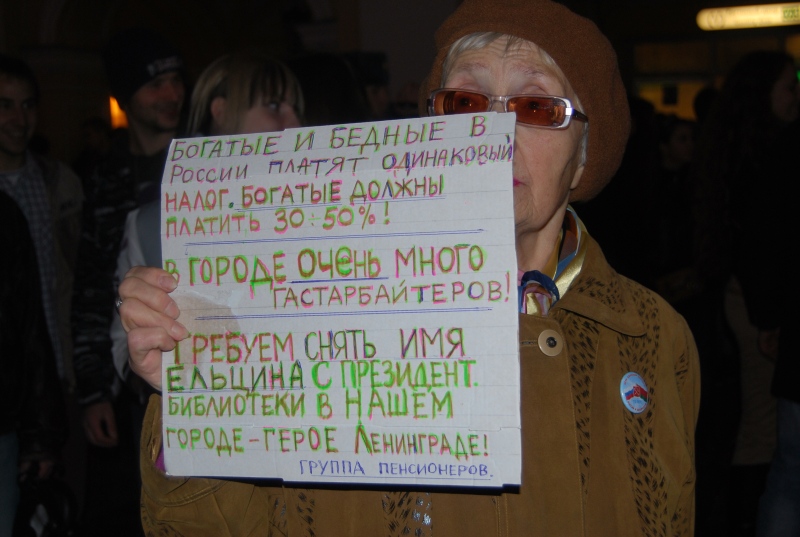 БОГАТЫЕ И БЕДНЫЕ В
РОССИИ ПЛАТЯТ ОДИНАКОВЫЙ
НАЛОГ. БОГАТЫЕ ДОЛЖНЫ
ПЛАТИТЬ 30÷50%!
В ГОРОДЕ ОЧЕНЬ МНОГО
ГАСТАРБАЙТЕРОВ!
ТРЕБУЕМ СНЯТЬ ИМЯ
ЕЛЬЦИНА С ПРЕЗИДЕНТ.
БИБЛИОТЕКИ В НАШЕМ
ГОРОДЕ-ГЕРОЕ ЛЕНИНГРАДЕ!
ГРУППА ПЕНСИОНЕРОВ.